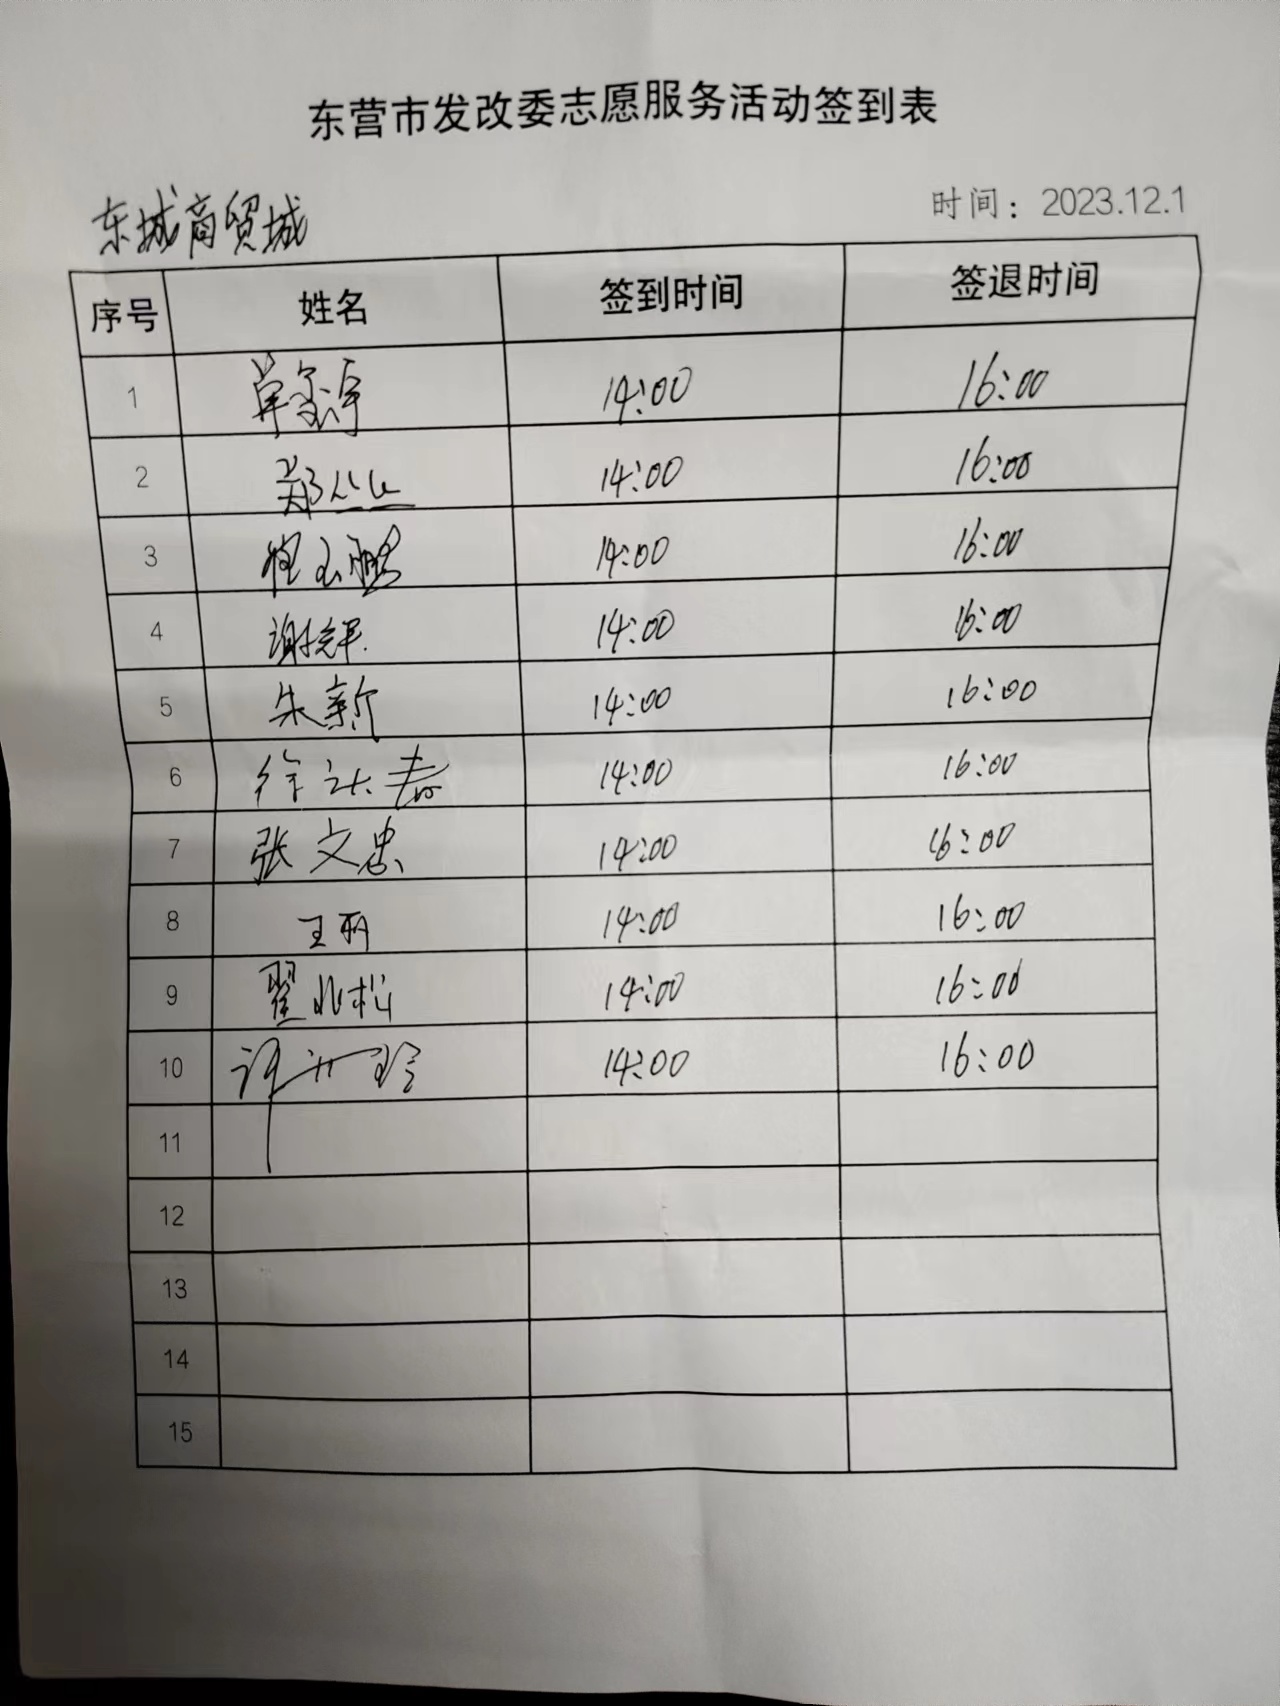 东营市发改委志愿服务活动签到表
时间：2023.12.1
东城商贸城
序号 姓名 签到时间 签退时间
1 14:00 16:00
2 郑丛丛 14:00 16:00
3 14:00 16:00
4 14:00 16:00
5 朱新 14:00 16:00
6 徐 春 14:00 16:00
7 张文忠 14:00 16:00
8 王丽 14:00 16:00
9 翟兆松 14:00 16:00
10 许 玲 14:00 16:00
11
12
13
14
15